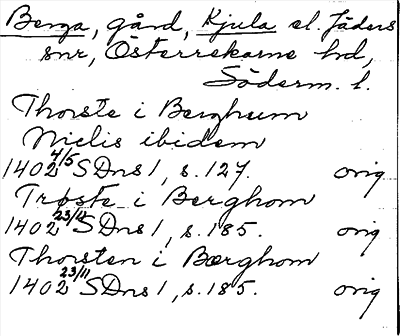 Berga, gård, Kjula el. Jäders
snr, Österrekarne hd,
Söderm. l.
Thorste i Berghum
Niclis ibidem
1402 4/5 SDns 1, s. 127. orig
Trøste i Berghom
1402 23/11 SDns 1, s. 185. orig
Thorsten i Berghom
1402 23/11 SDns 1, s. 185. orig